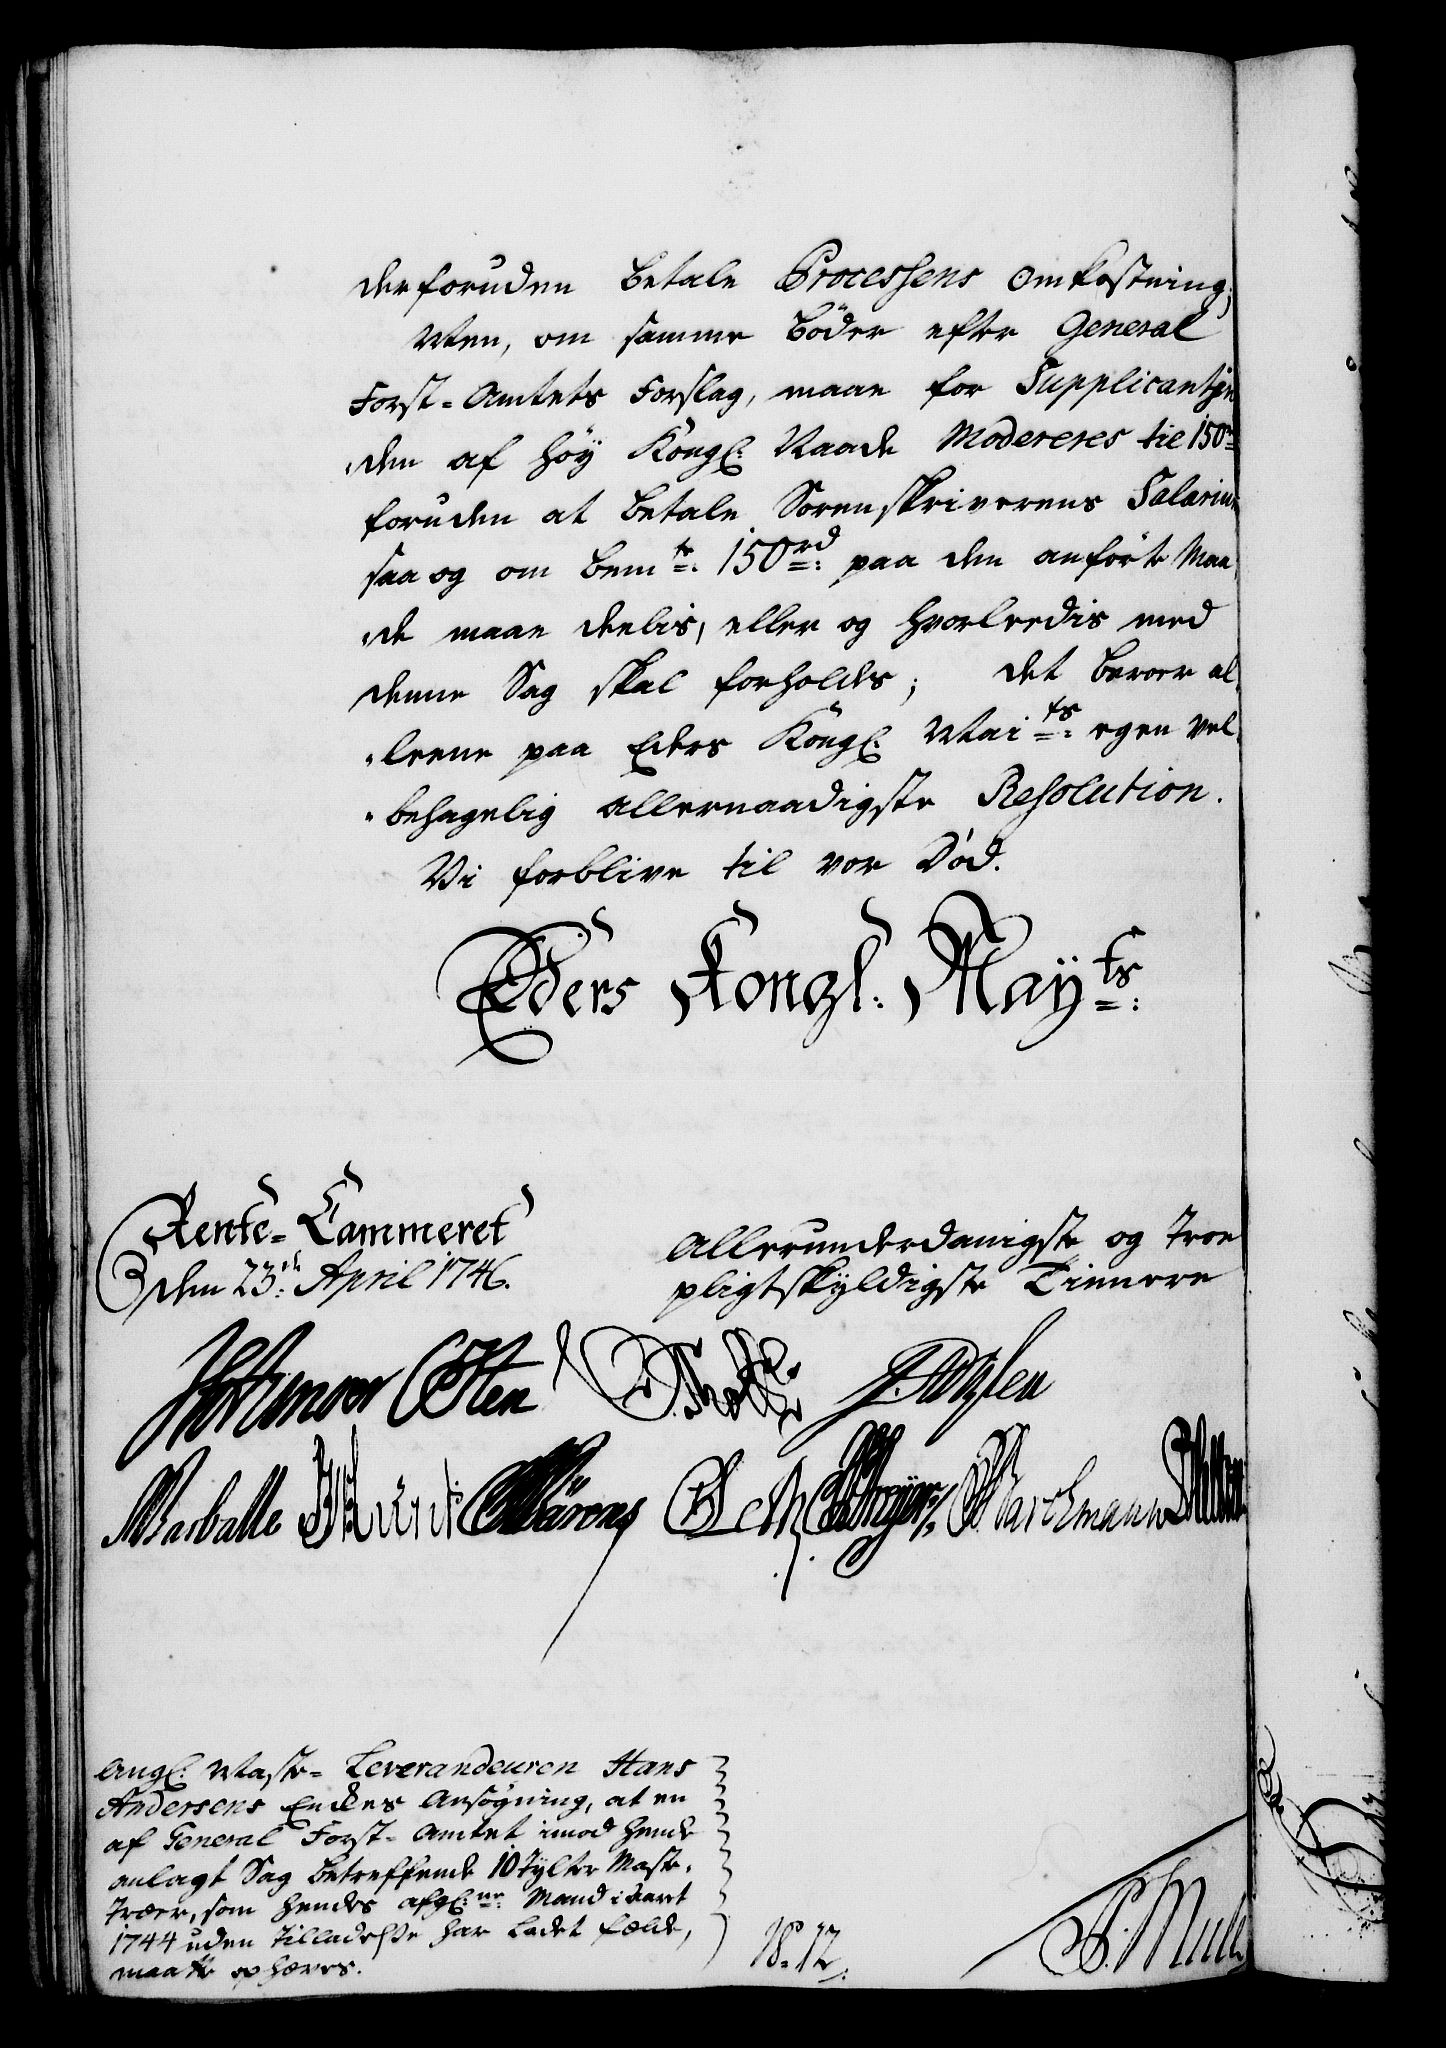 derforuden betale Processens Omkostning;
Men, om samme Böder efter General
Forst-Amtets Forslag, maae for Supplicantin-
den af höy Kongl: Naade Modereres til 150 rd
foruden at betale Sorenskriverens Salarium
saa og om bemte: 150 rd: paa den anförte Maa-
de maae deelis, eller og hvorleedis med
denne Sag skal forholdes; det beroer al-
leene paa Eders Kongl: Maits: egen vel-
behagelig allernaadigste Resolution.
Vi forblive til vor Död.
Eders Kongl. Mayts:
Rente-Cammeret
den 23de April 1746.
Allerunderdanigste og troe
pligtskyldigste Tienere
Holtzmoer Osten
Barballe
Angl: Maste-Leverandeuren Hans
Andersens Enkes Ansögning, at en
af General Forst-Amtet imod hende
anlagt Sag betreffende 10 Tylter Maste-
træer, som hendes afgl:ne: Mand i aaret
1744 uden Tilladelsse har ladet fælde,
maatte ophæves.
N: 12.